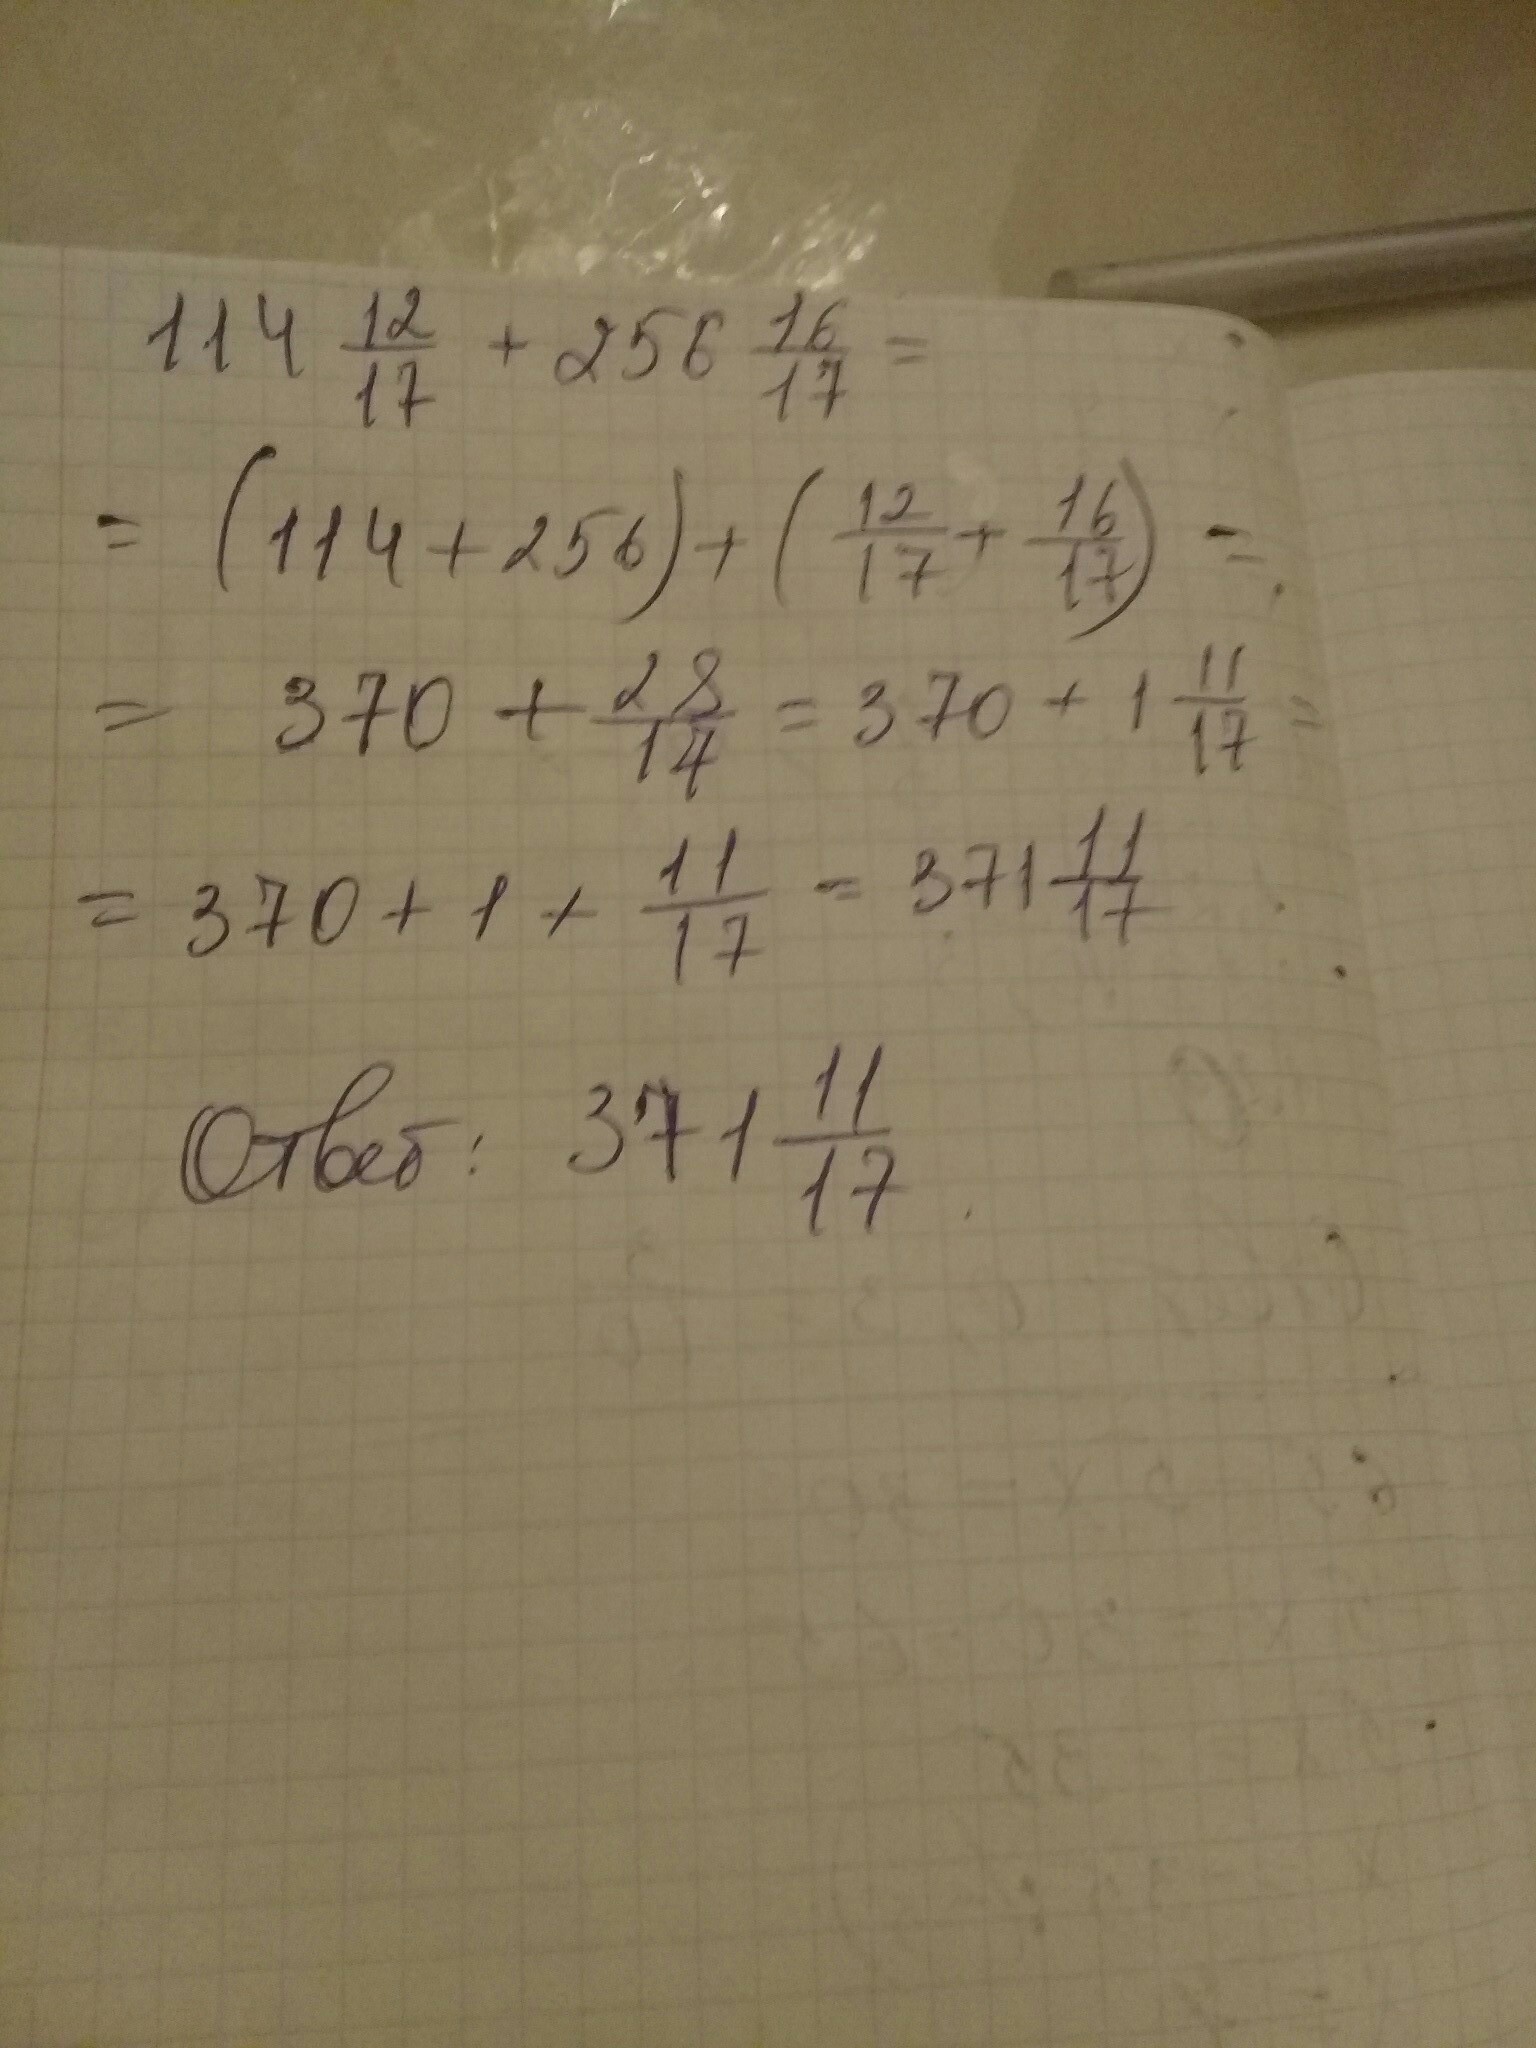 114 12/17 + 256 16/17 =
= (114 + 256) + (12/17 + 16/17) =
= 370 + 28/17 = 370 + 1 11/17 =
= 370 + 1 + 11/17 = 371 11/17
Ответ: 371 11/17.